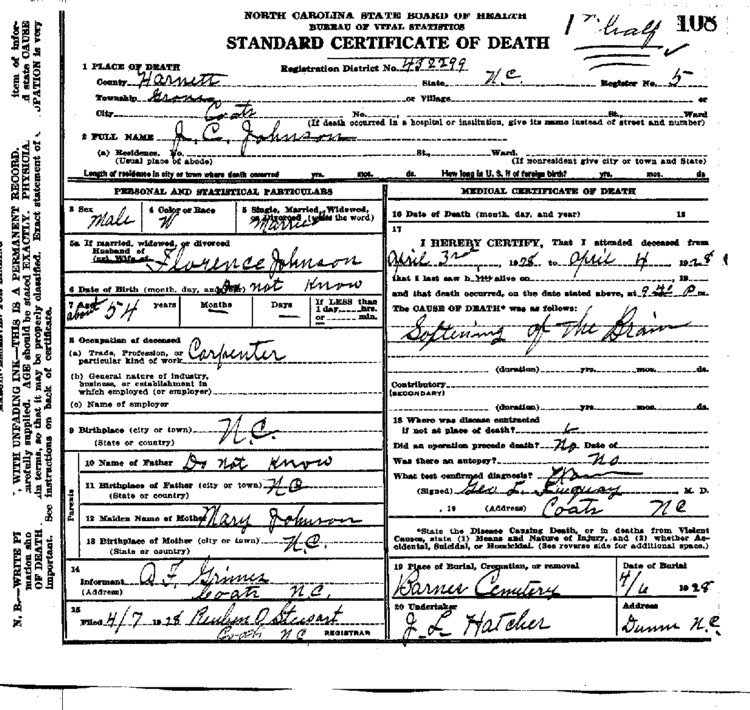 NORTH CAROLINA STATE BOARD OF HEALTH
BUREAU OF VITAL STATISTICS
STANDARD CERTIFICATE OF DEATH
1st half 108
1 PLACE OF DEATH
Registration District No. 432299
County Harnett State N.C. Register No. 5
Township Grove or Village or
City Coats No. St., Ward
(If death occurred in a hospital or institution, give its name instead of street and number)
2 FULL NAME J. C. Johnson
(a) Residence. No. St., Ward.
(Usual place of abode) (If nonresident give city or town and State)
Length of residence in city or town where death occurred yrs. mos. ds. How long in U. S. if of foreign birth? yrs. mos. ds
PERSONAL AND STATISTICAL PARTICULARS
3 Sex Male
4 Color or Race W
5 Single, Married, Widowed, or Divorced (write the word) Married
5a If married, widowed, or divorced
Husband of
(or) Wife of Florence Johnson
6 Date of Birth (month, day, and Do not Know
7 Age about 54 years Months Days If LESS than 1 day hrs. or min.
8 Occupation of deceased
(a) Trade, Profession, or particular kind of work Carpenter
(b) General nature of industry, business, or establishment in which employed (or employer)
(c) Name of employer
9 Birthplace (city or town) N.C.
(State or country)
Parents
10 Name of Father Do not Know
11 Birthplace of Father (city or town) N C
(State or country)
12 Maiden Name of Mother Mary Johnson
13 Birthplace of Mother (city or town) N.C.
(State or country)
14
Informant Q F. Grimes
(Address) Coats N.C.
15
Filed 4/7 1928 Reuben O Stewart
Coats N C REGISTRAR
MEDICAL CERTIFICATE OF DEATH
16 Date of Death (month, day, and year) 19
17
I HEREBY CERTIFY, That I attended deceased from
April 3rd, 1928 to April 4, 1928
that I last saw h alive on 19
and that death occurred, on the date stated above, at 9 P m.
The CAUSE OF DEATH* was as follows:
Softening of the Brain
(duration) yrs. mos. ds.
Contributory
(SECONDARY)
(duration) yrs. mos. ds
18 Where was disease contracted
if not at place of death?
Did an operation precede death? No Date of
Was there an autopsy? No
What test confirmed diagnosis?
(Signed) Geo L. M. D.
, 19 (Address) Coats N C
*State the Disease Causing Death, or in deaths from Violent Causes, state (1) Means and Nature of Injury, and (2) whether Accidental, Suicidal, or Homicidal. (See reverse side for additional space.)
19 Place of Burial, Cremation, or removal Date of Burial
Barnes Cemetery 4/6 1928
20 Undertaker Address
J. L Hatcher Dunn N.C.
N. B.—WRITE PL , WITH UNFADING INK—THIS IS A PERMANENT RECORD. item of infor-
mation sho arefully supplied. AGE should be stated EXACTLY. PHYSICIA d state CAUSE
OF DEATH in terms, so that it may be properly classified. Exact statement of UPATION is very
important. See instructions on back of certificate.